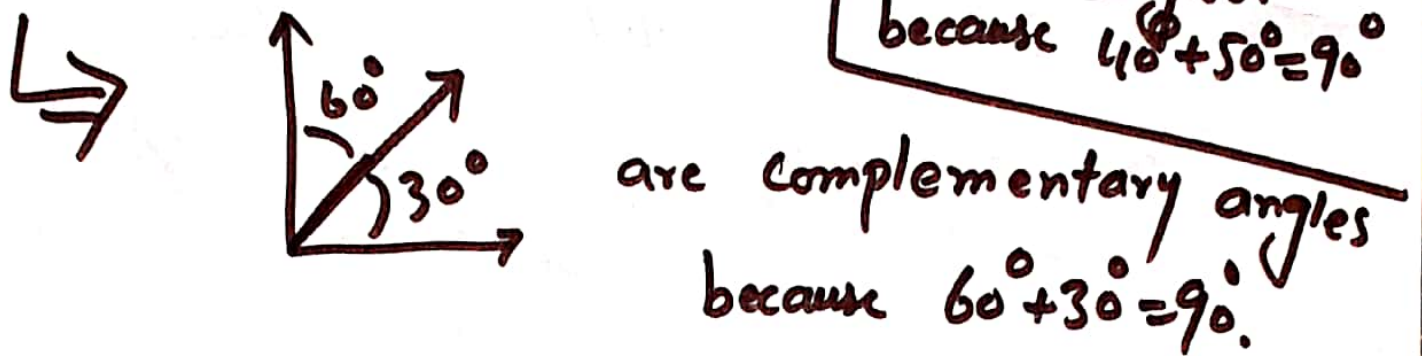 because 40°+50°=90°
60°
30°
are complementary angles
because 60°+30°=90°.